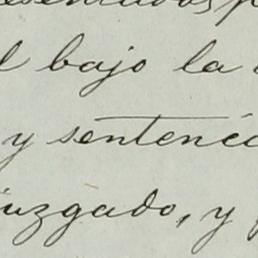 bajo la
y sentenci
juzgado, y